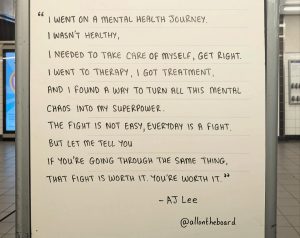 “ I WENT ON A MENTAL HEALTH JOURNEY.
I WASN'T HEALTHY,
I NEEDED TO TAKE CARE OF MYSELF, GET RIGHT.
I WENT TO THERAPY, I GOT TREATMENT,
AND I FOUND A WAY TO TURN ALL THIS MENTAL
CHAOS INTO MY SUPERPOWER.
THE FIGHT IS NOT EASY, EVERYDAY IS A FIGHT.
BUT LET ME TELL YOU
IF YOU'RE GOING THROUGH THE SAME THING,
THAT FIGHT IS WORTH IT. YOU'RE WORTH IT. ”
- AJ Lee
@allontheboard